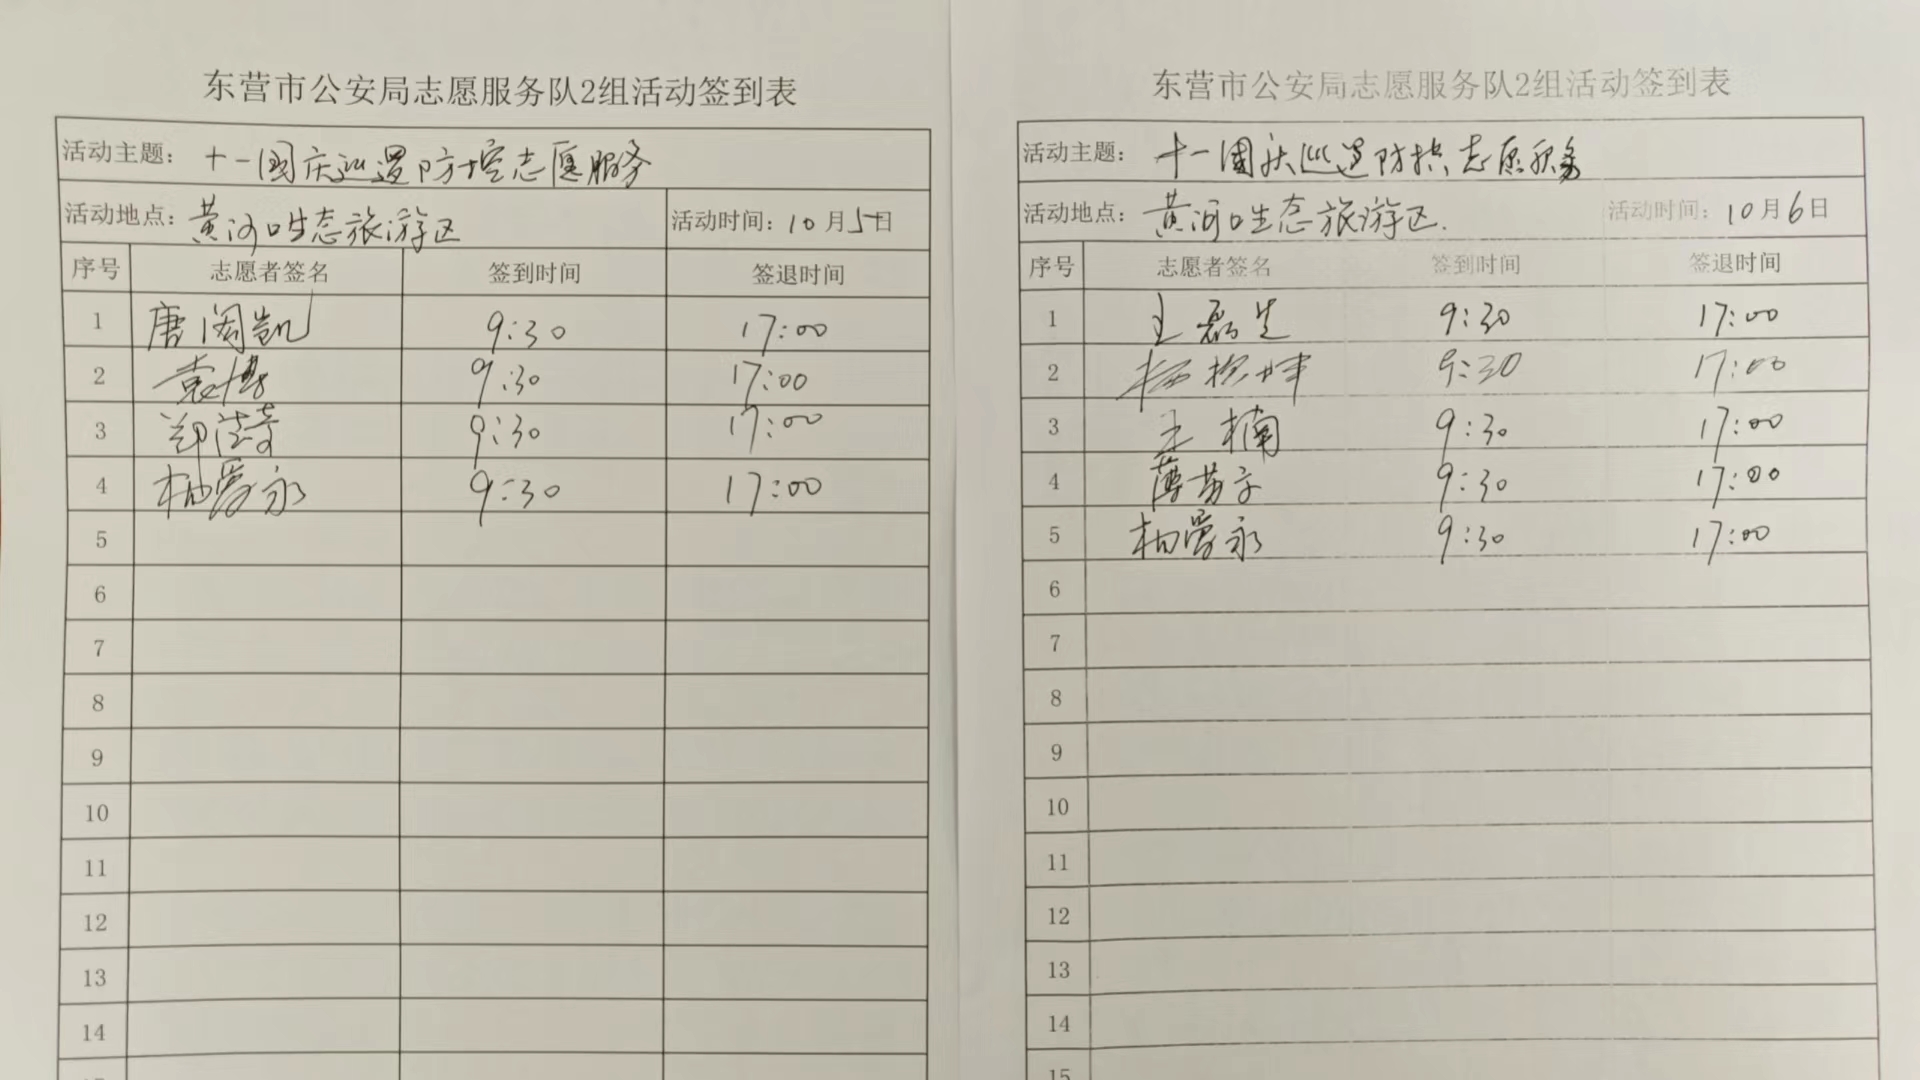 东营市公安局志愿服务队2组活动签到表
活动主题: 十一国庆巡逻防控志愿服务
活动地点: 黄河口生态旅游区 活动时间: 10月5日
序号 志愿者签名 签到时间 签退时间
1 唐阁凯 9:30 17:00
2 袁博 9:30 17:00
3 郑 9:30 17:00
4 柏爱永 9:30 17:00
5
6
7
8
9
10
11
12
13
14
东营市公安局志愿服务队2组活动签到表
活动主题: 十一国庆巡逻防控志愿服务
活动地点: 黄河口生态旅游区. 活动时间: 10月6日
序号 志愿者签名 签到时间 签退时间
1 王磊 9:30 17:00
2 杨 9:30 17:00
3 王楠 9:30 17:00
4 薄 9:30 17:00
5 柏爱永 9:30 17:00
6
7
8
9
10
11
12
13
14
15